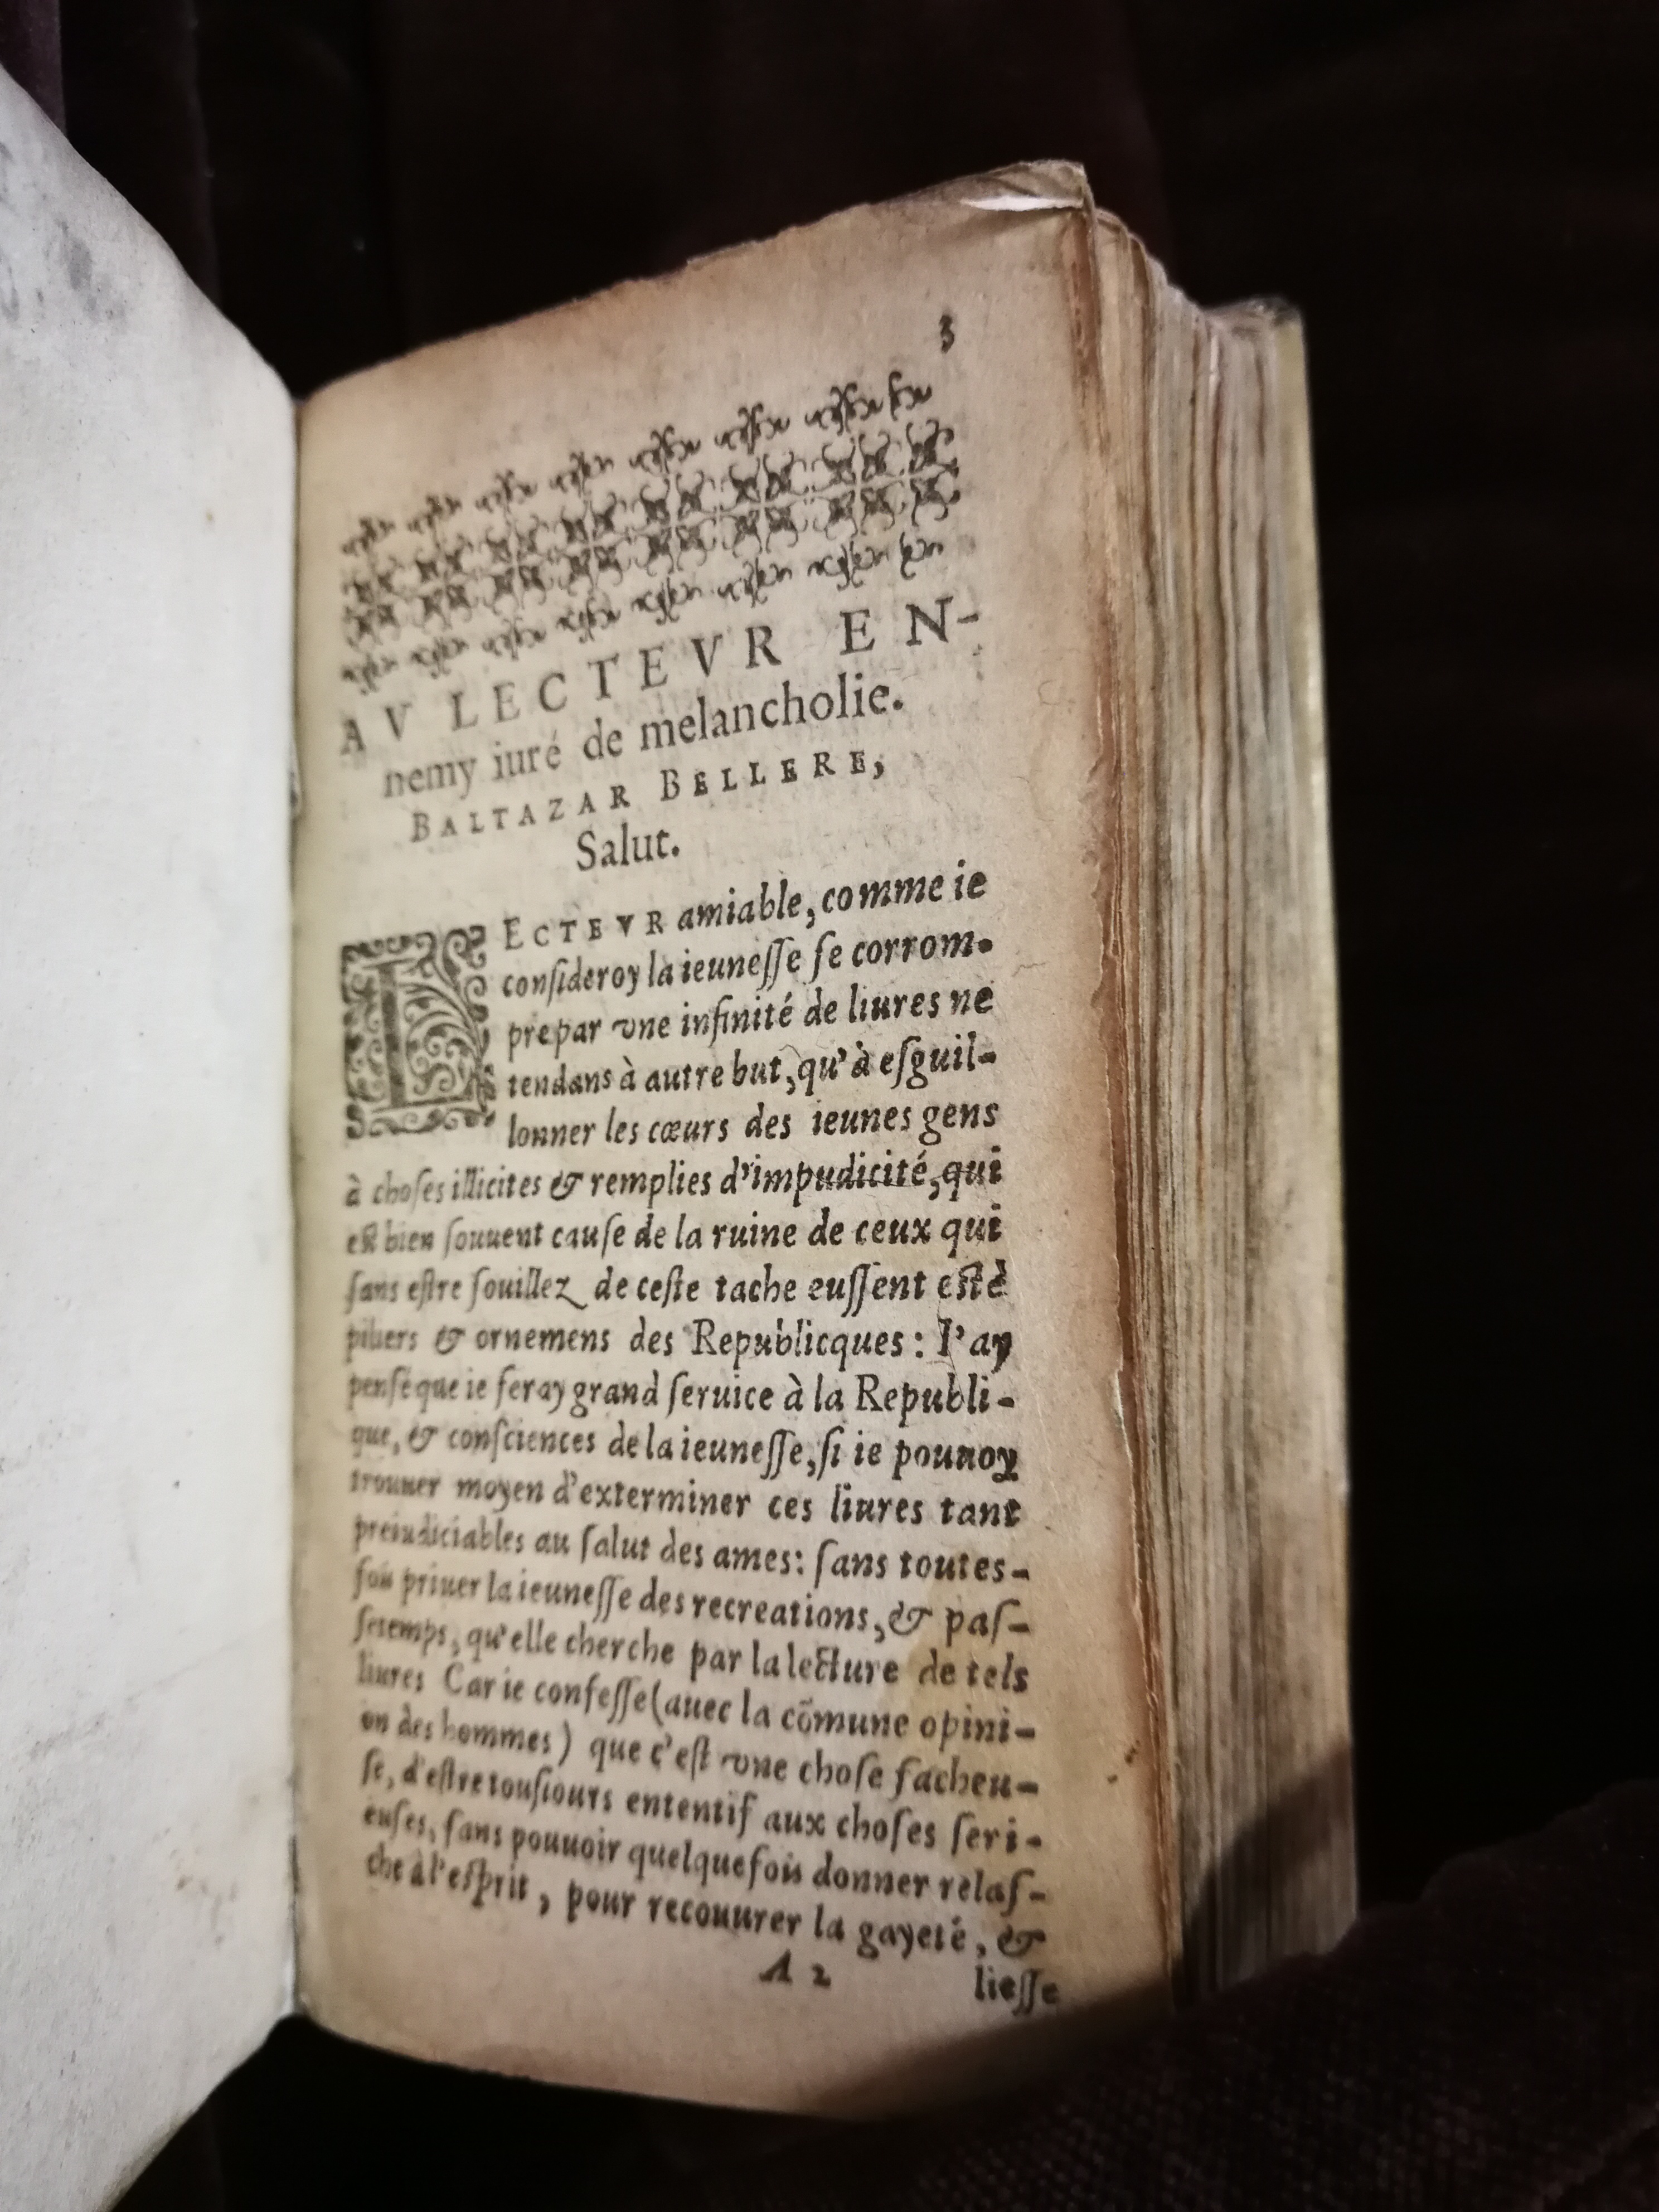 3
AV LECTEVR EN-
nemy iuré de melancholie.
BALTAZAR BELLERE,
Salut.
LECTEVR amiable, comme ie
conſideroy la ieuneſſe ſe corrom-
pre par vne infinité de liures ne
tendans à autre but, qu'à eſguil-
lonner les cœurs des ieunes gens
à choſes illicites & remplies d'impudicité, qui
est bien ſouuent cauſe de la ruine de ceux qui
ſans eſtre ſouillez de ceſte tache euſſent esté
piliers & ornemens des Republicques: I'ay
penſé que ie feray grand ſeruice à la Republi-
que, & conſciences de la ieuneſſe, ſi ie pouuoy
trouuer moyen d'exterminer ces liures tant
preiudiciables au ſalut des ames: ſans toutes-
fois priuer la ieuneſſe des recreations, & paſ-
ſetemps, qu'elle cherche par la lecture de tels
liures Car ie confeſſe (auec la cõmune opini-
on des hommes) que c'eſt vne choſe facheu-
ſe, d'eſtre touſiours ententif aux choſes ſeri-
euſes, ſans pouuoir quelquefois donner relaſ-
che à l'esprit, pour recouurer la gayeté, &
A 2 lieſſe